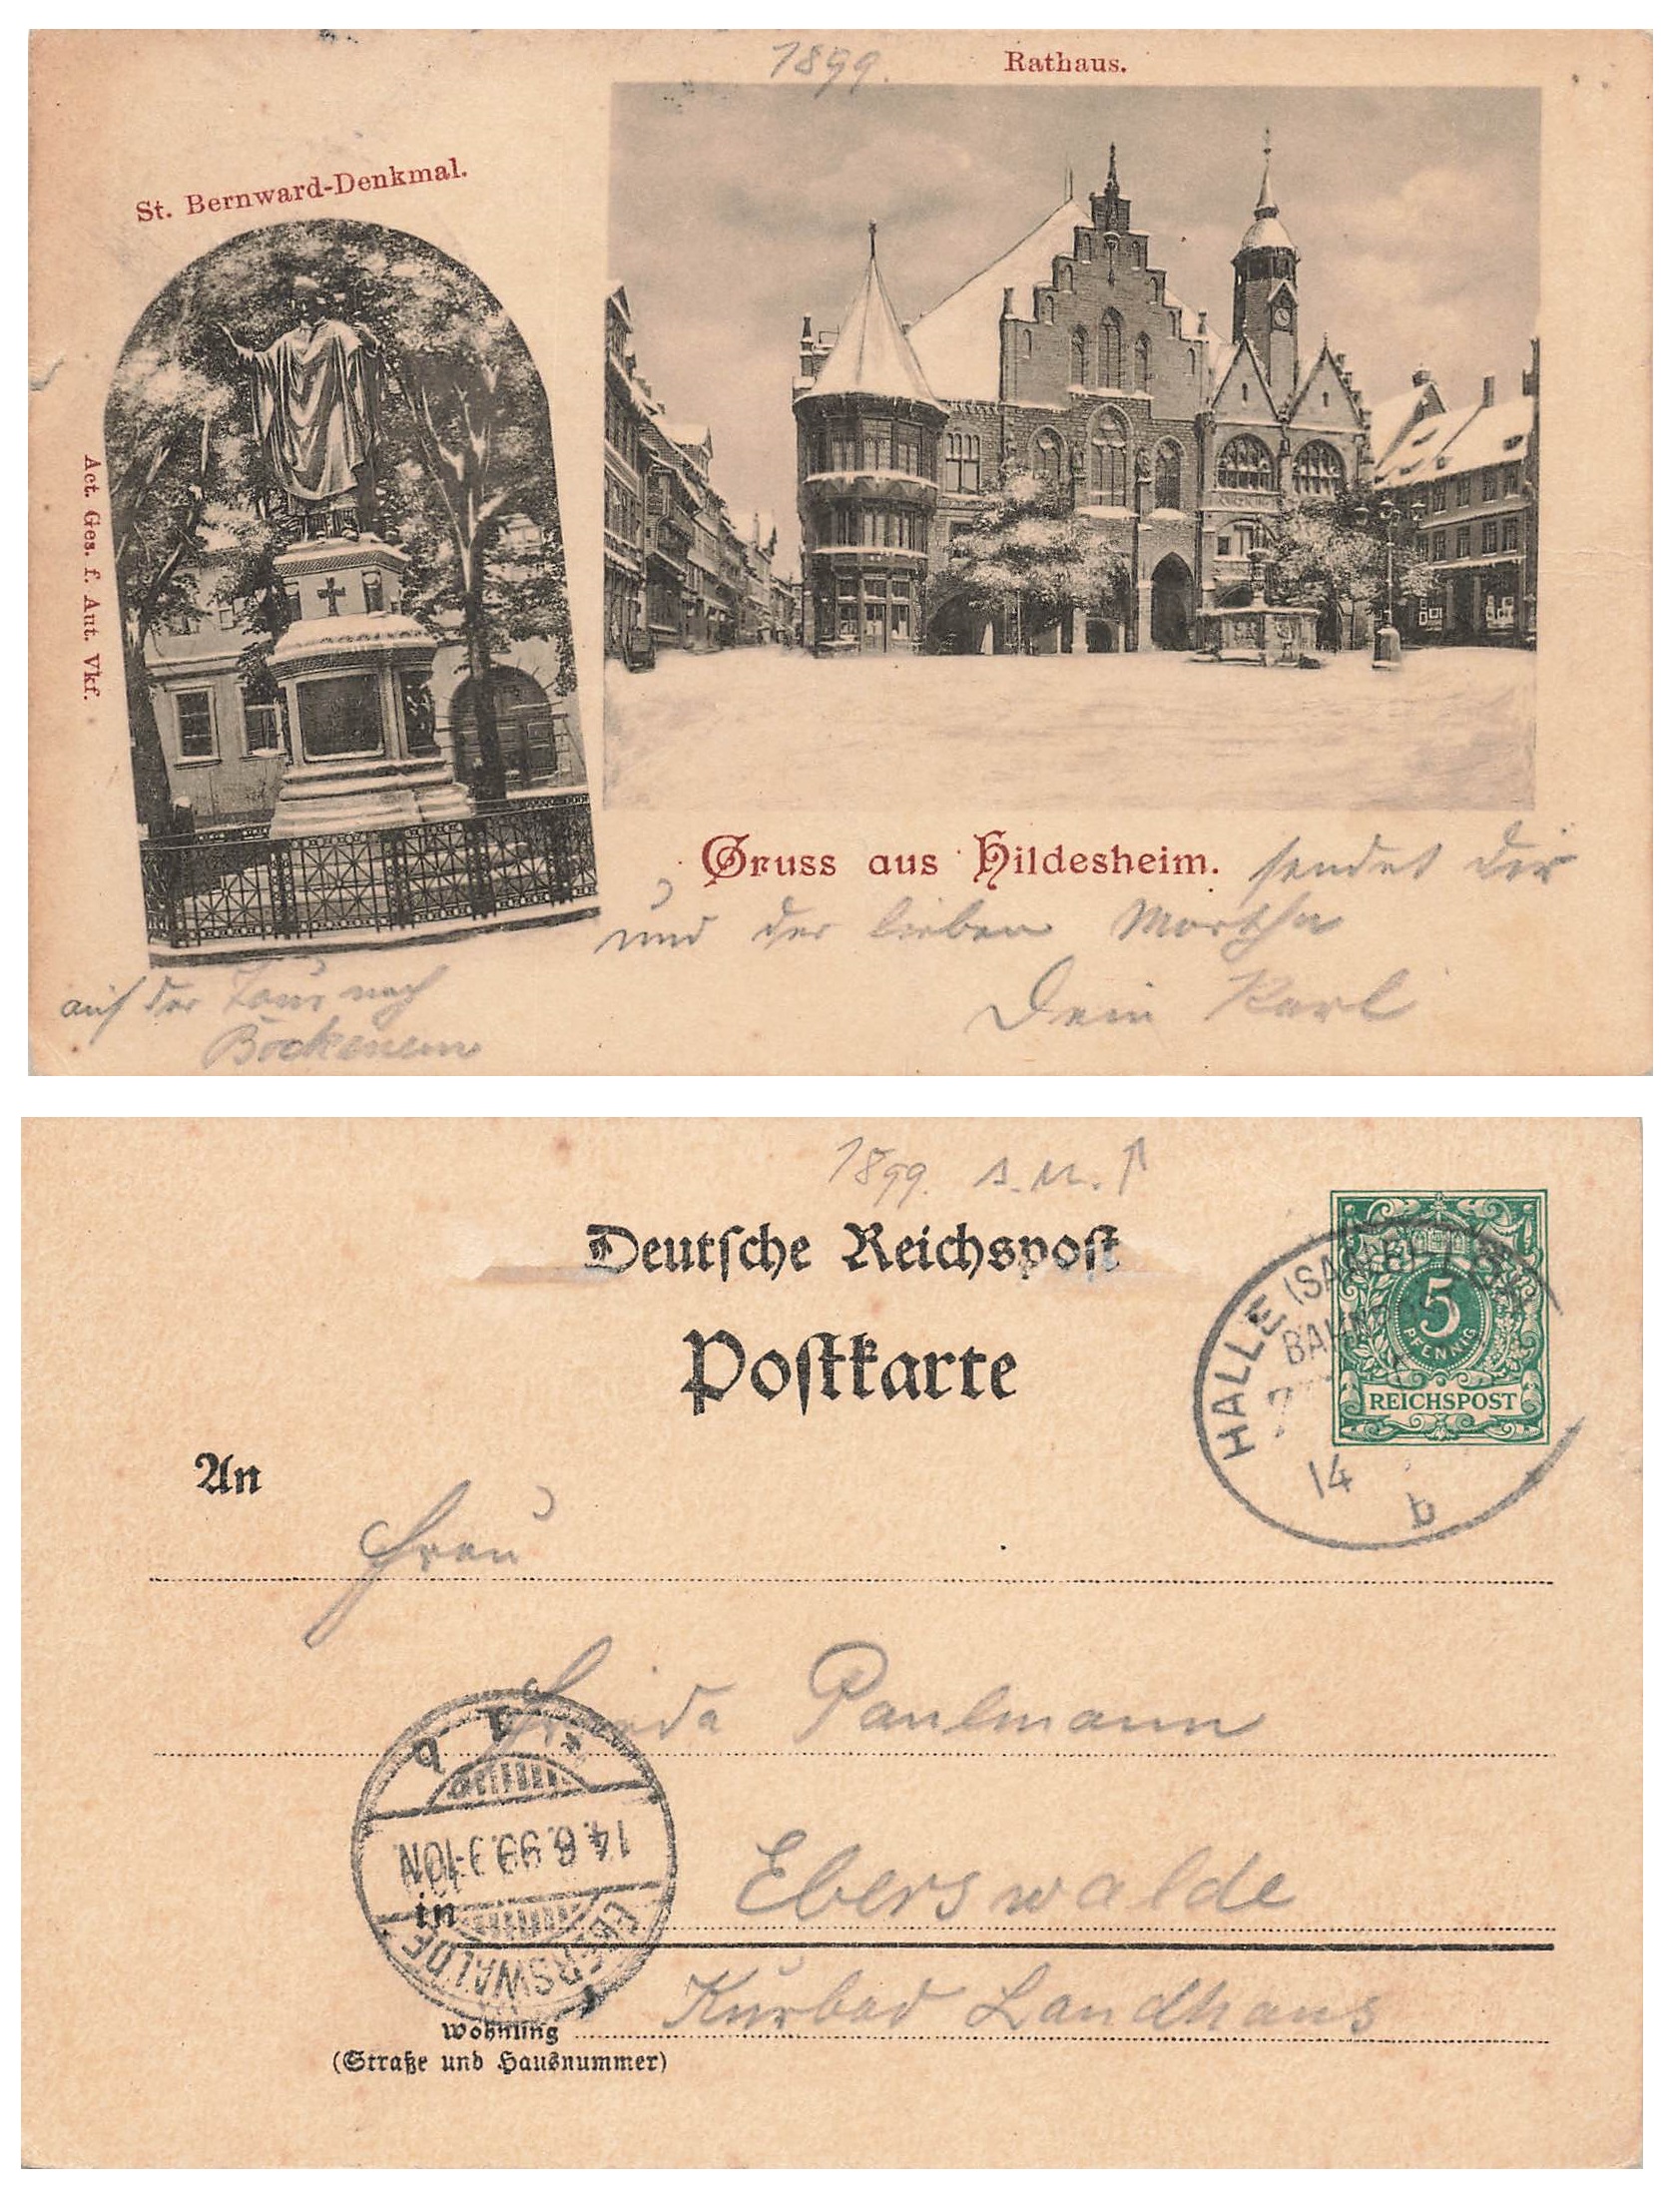 1899.
Rathaus.
St. Bernward-Denkmal.
Act. Ges. f. Aut. Vkf.
Gruss aus Hildesheim. sendet dir
und der lieben Martha
Dein Karl
auf der Tour nach
Bockenem
1899.
Deutsche Reichspost
Postkarte
5
PFENNIG
REICHSPOST
HALLE (SAALE)
14
b
An
Frau
Frieda Paulmann
14.6.99. 9-10N
EBERSWALDE
in Eberswalde
Kurbad Landhaus
Wohnung
(Straße und Hausnummer)